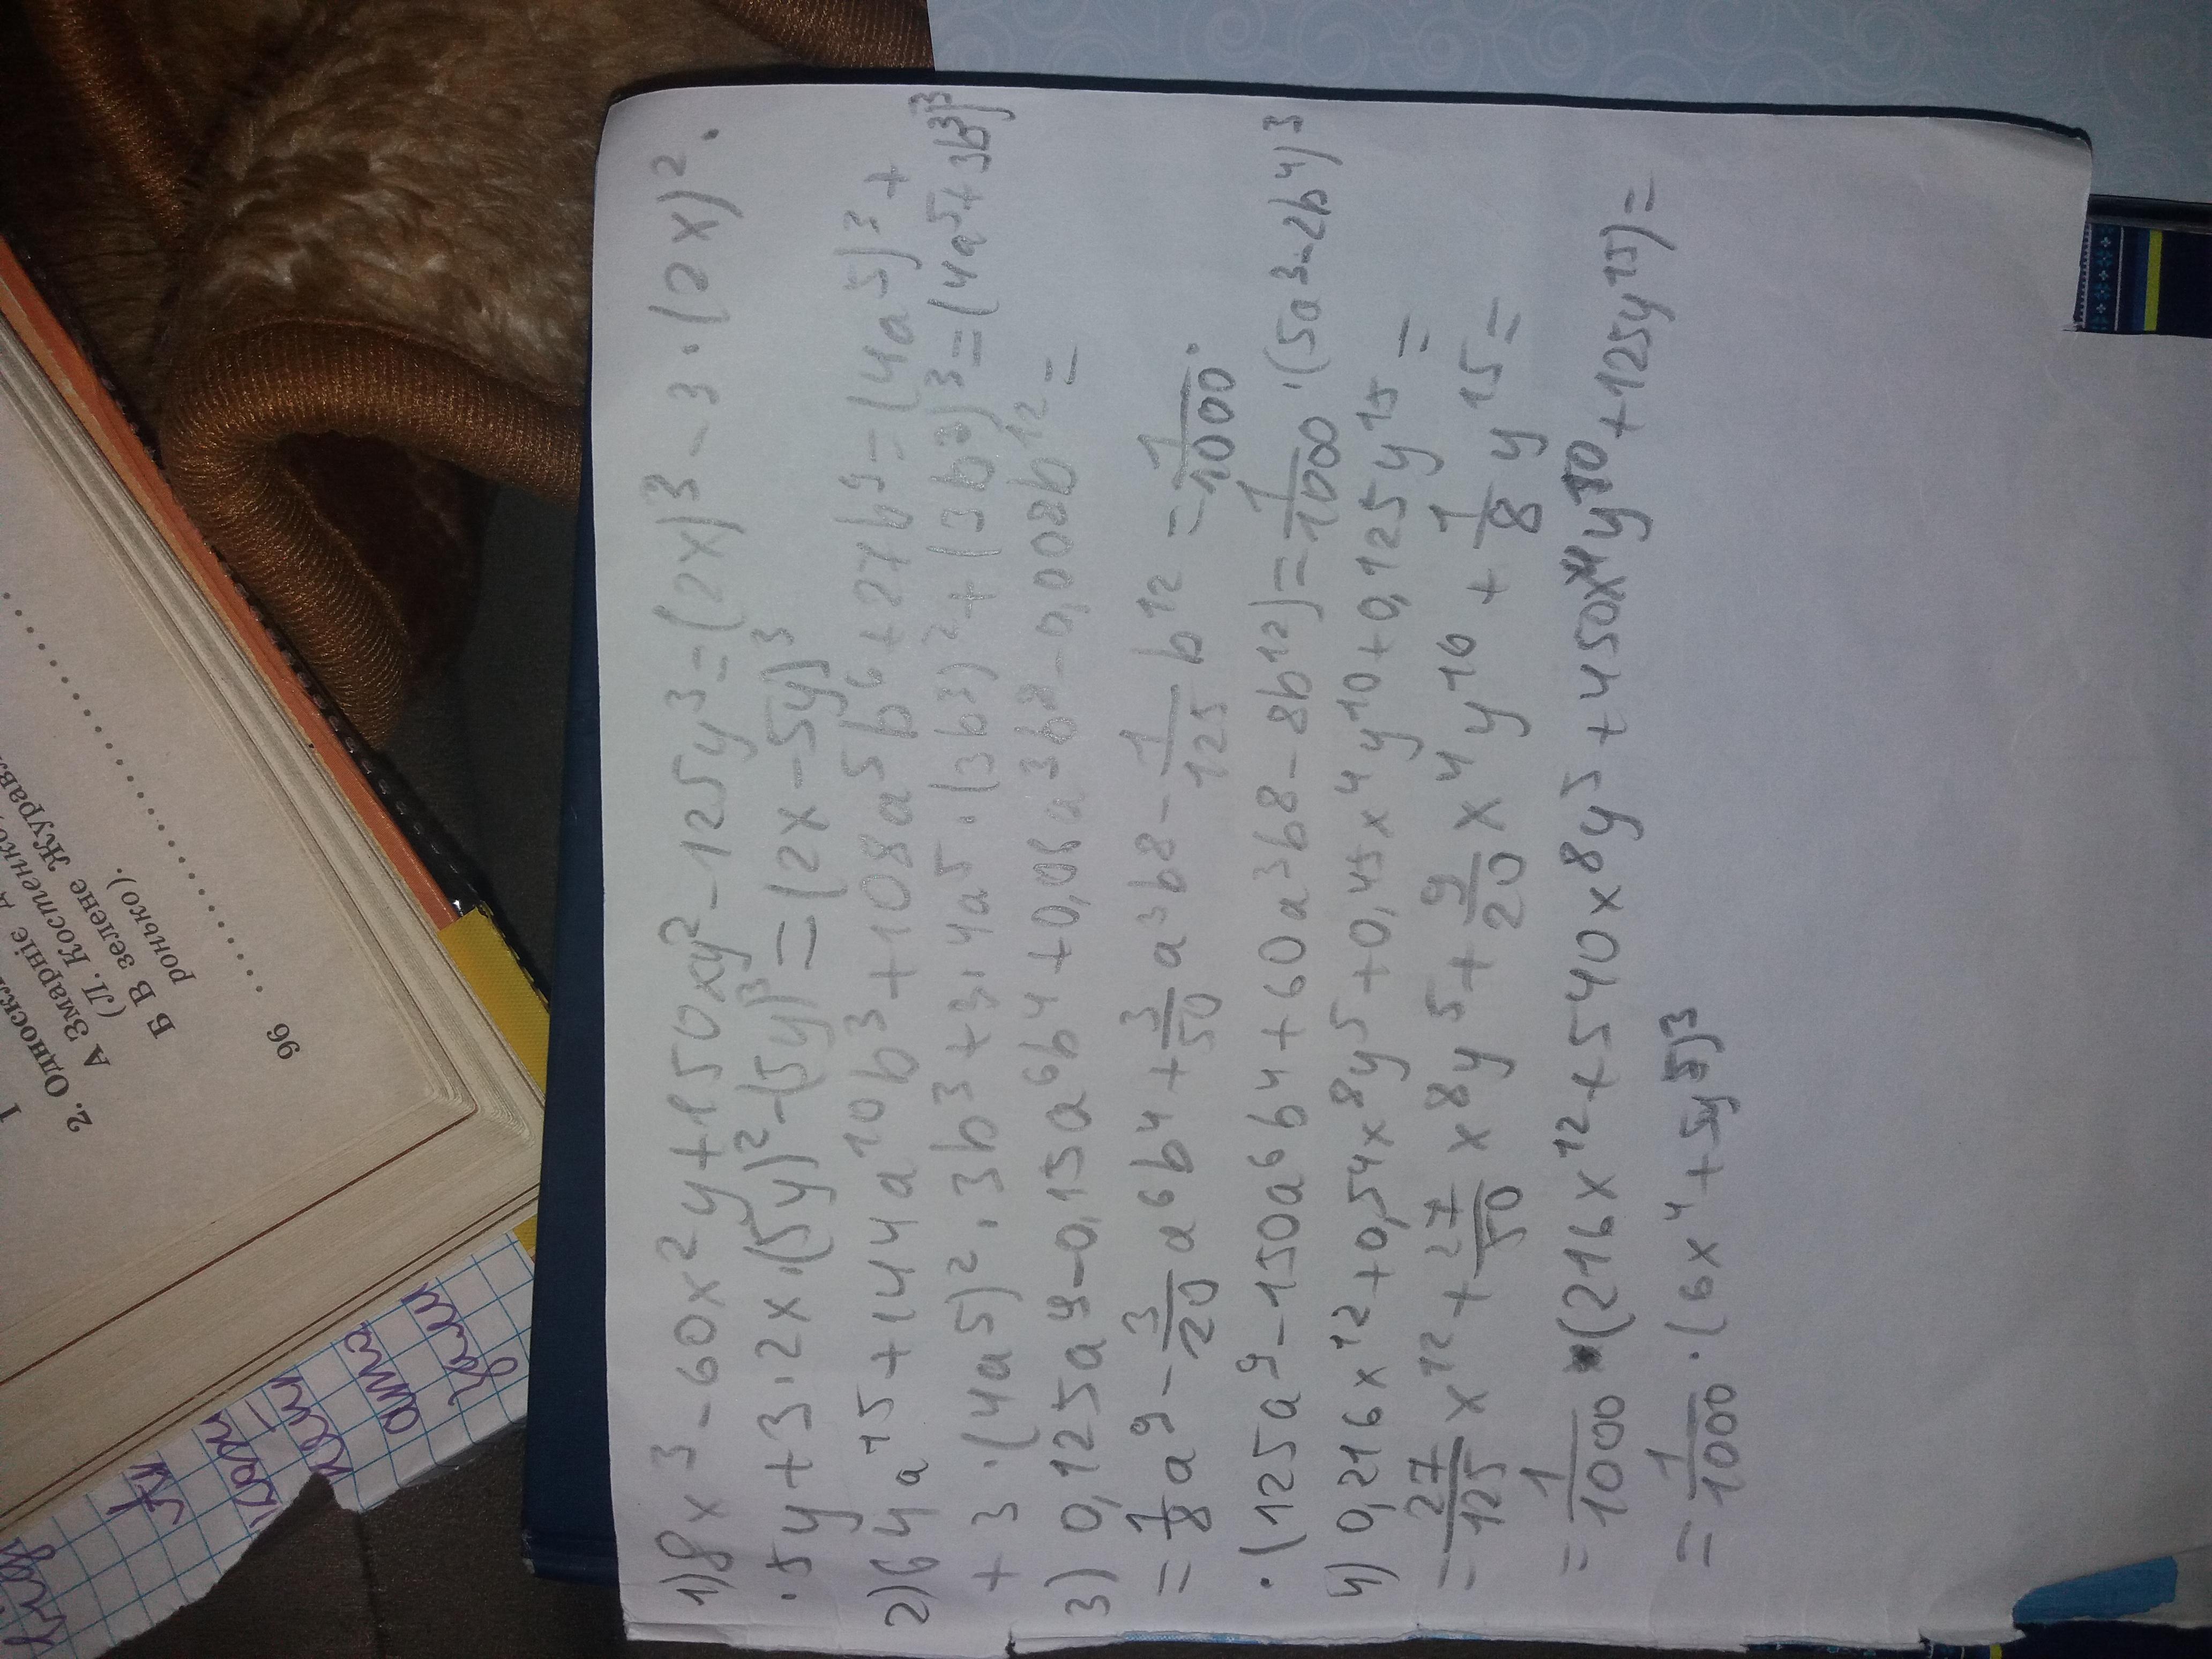 1) 8x³-60x²y+150xy²-125y³=(2x)³-3·(2x)²·
·5y+3·2x·(5y)²-(5y)³=(2x-5y)³
2) 64a¹⁵+144a¹⁰b³+108a⁵b⁶+27b⁹=(4a⁵)³+
+3·(4a⁵)²·3b³+3·4a⁵·(3b³)²+(3b³)³=(4a⁵+3b³)³
3) 0,125a⁹-0,15a⁶b⁴+0,06a³b⁸-0,008b¹²=
=1/8 a⁹-3/20 a⁶b⁴+3/50 a³b⁸-1/125 b¹²=1/1000·
·(125a⁹-150a⁶b⁴+60a³b⁸-8b¹²)=1/1000·(5a³-2b⁴)³
4) 0,216x¹²+0,54x⁸y⁵+0,45x⁴y¹⁰+0,125y¹⁵=
=27/125 x¹²+27/50 x⁸y⁵+9/20 x⁴y¹⁰+1/8 y¹⁵=
=1/1000·(216x¹²+540x⁸y⁵+450x⁴y¹⁰+125y¹⁵)=
=1/1000·(6x⁴+5y⁵)³
1
2. Односкл
А Змарніє
(Л. Костенко
Б В зелене Журав
ронько).
96